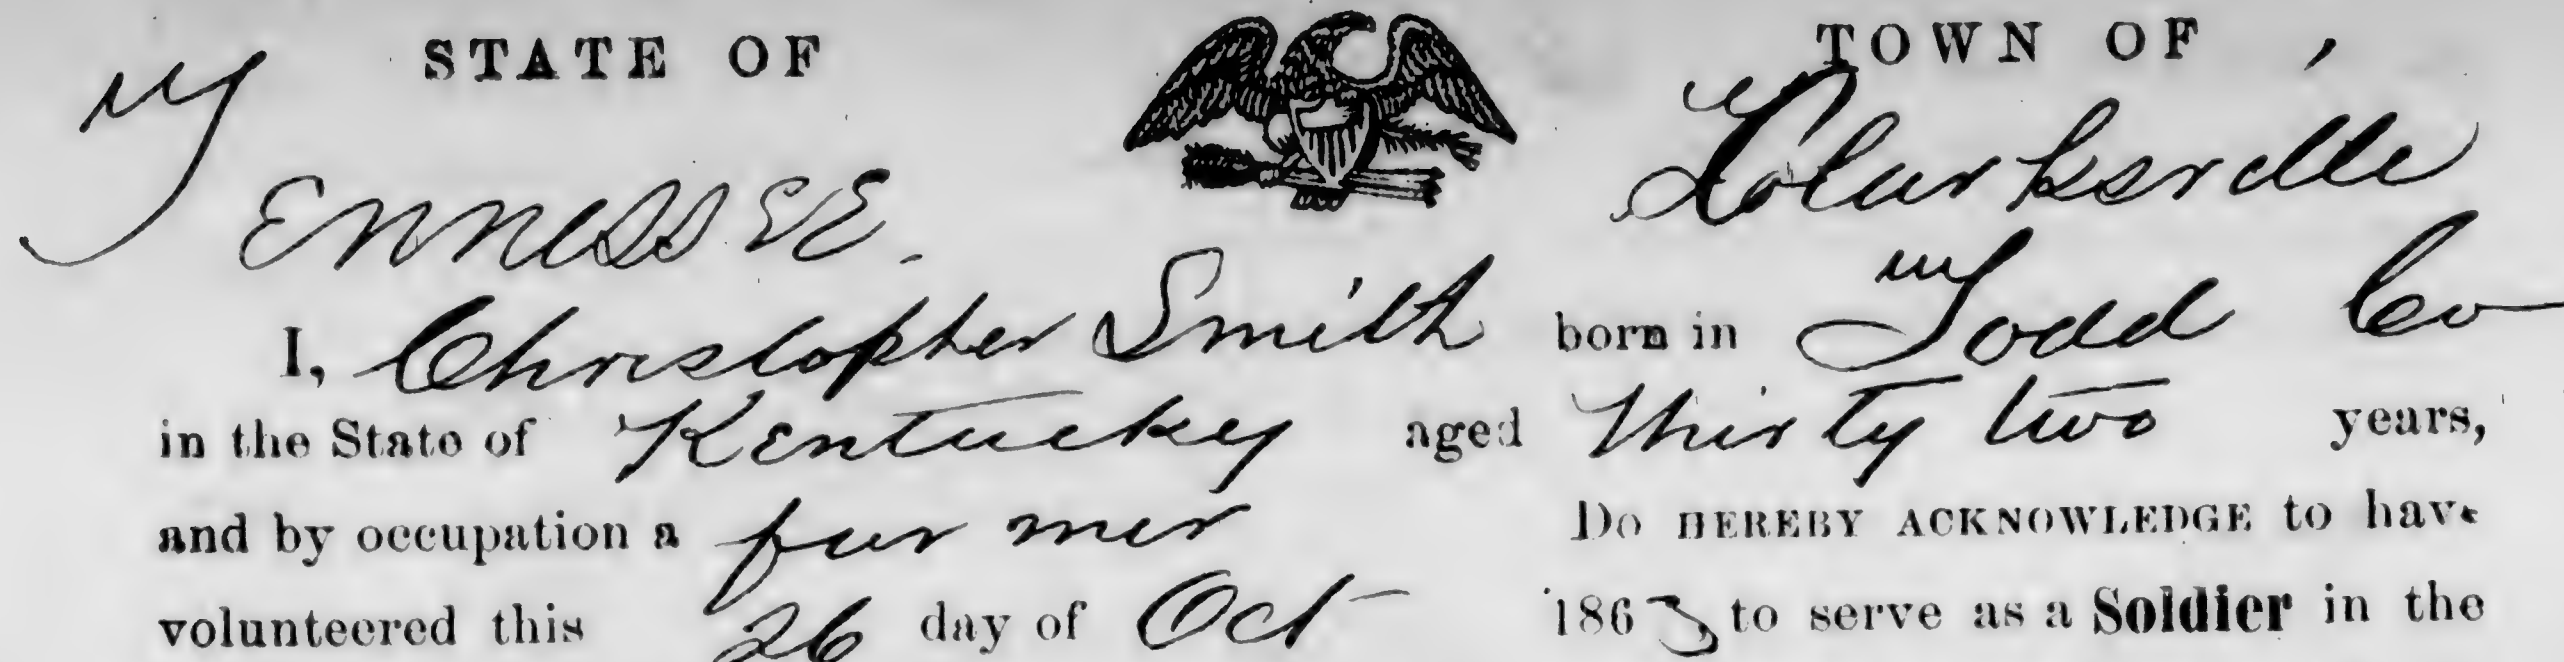 STATE OF TOWN OF
Tennessee. Clarksville
I, Christopher Smith born in Todd Co
in the State of Kentucky aged thirty two years,
and by occupation a farmer Do HEREBY ACKNOWLEDGE to have
volunteered this 26 day of Oct 1863, to serve as a Soldier in the